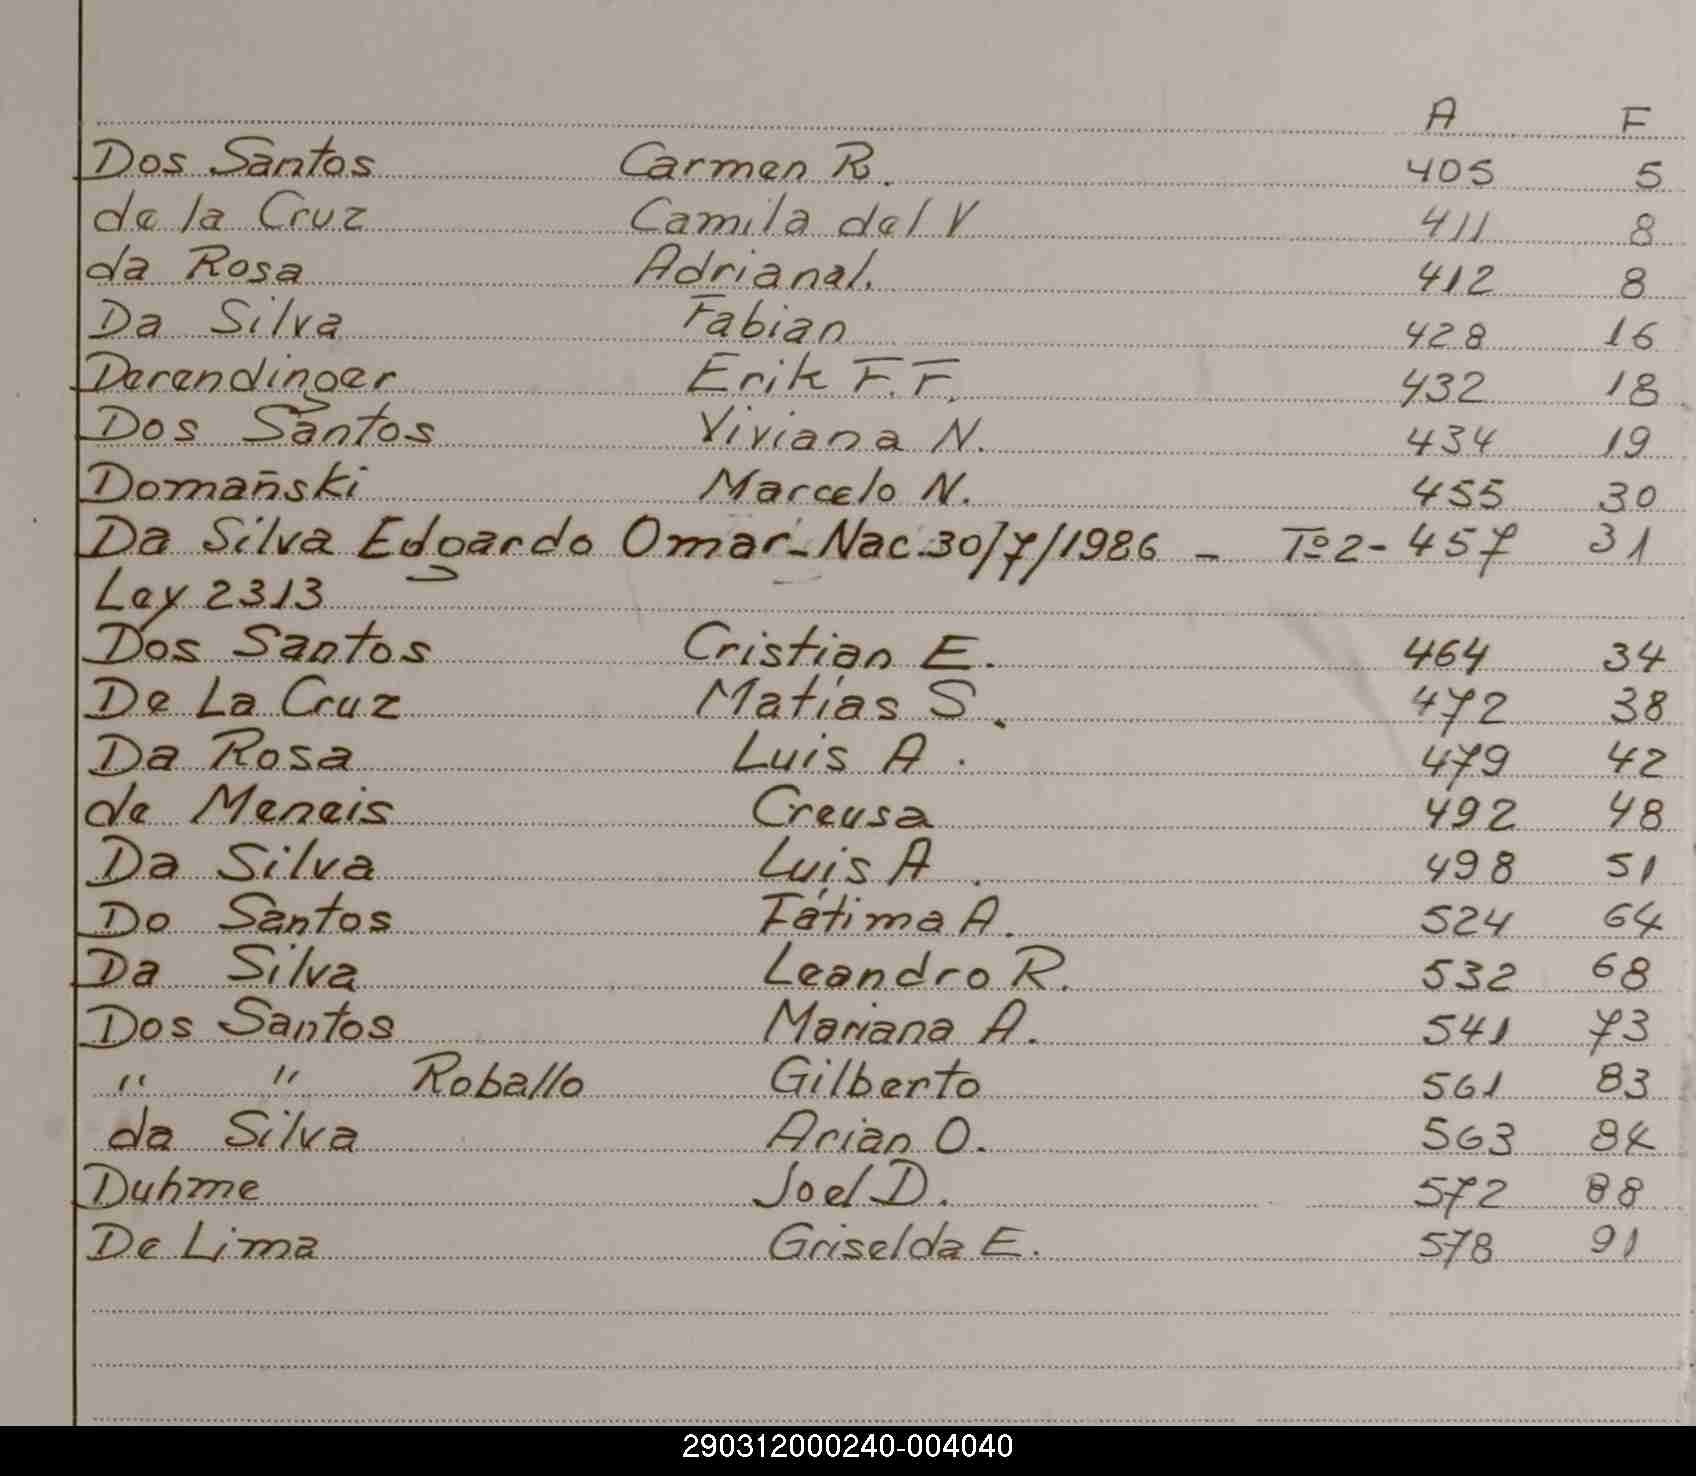 A F
Dos Santos Carmen R. 405 5
de la Cruz Camila del V 411 8
da Rosa Adriana I. 412 8
Da Silva Fabian 428 16
Derendinger Erik F. F. 432 18
Dos Santos Viviana N. 434 19
Domañski Marcelo N. 455 30
Da Silva Edgardo Omar - Nac. 30/7/1986 - Tº 2 - 457 31
Ley 2313
Dos Santos Cristian E. 464 34
De La Cruz Matías S. 472 38
Da Rosa Luis A. 479 42
de Meneis Creusa 492 48
Da Silva Luis A. 498 51
Do Santos Fátima A. 524 64
Da Silva Leandro R. 532 68
Dos Santos Mariana A. 541 73
" " Roballo Gilberto 561 83
da Silva Arian O. 563 84
Duhme Joel D. 572 88
De Lima Griselda E. 578 91
290312000240-004040